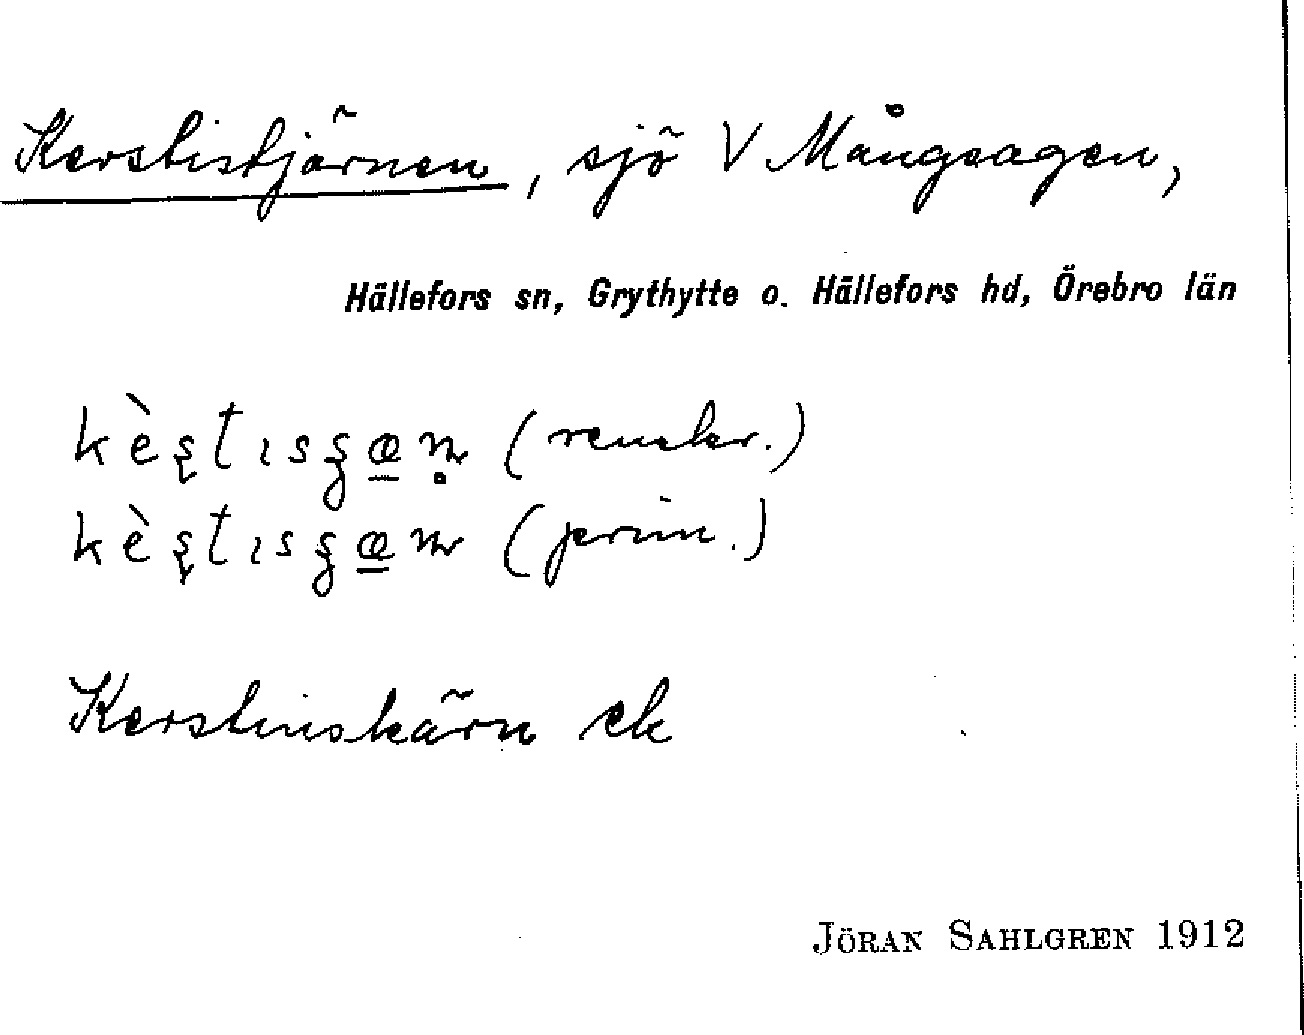 Kerstistjärnen, sjö V Mångsagen,
Hällefors sn, Grythytte o. Hällefors hd, Örebro län
kèʂtɪsʂæn̥ (renskr.)
kèʂtɪsʂæn (prim.)
Kerstinskärn ek
JÖRAN SAHLGREN 1912